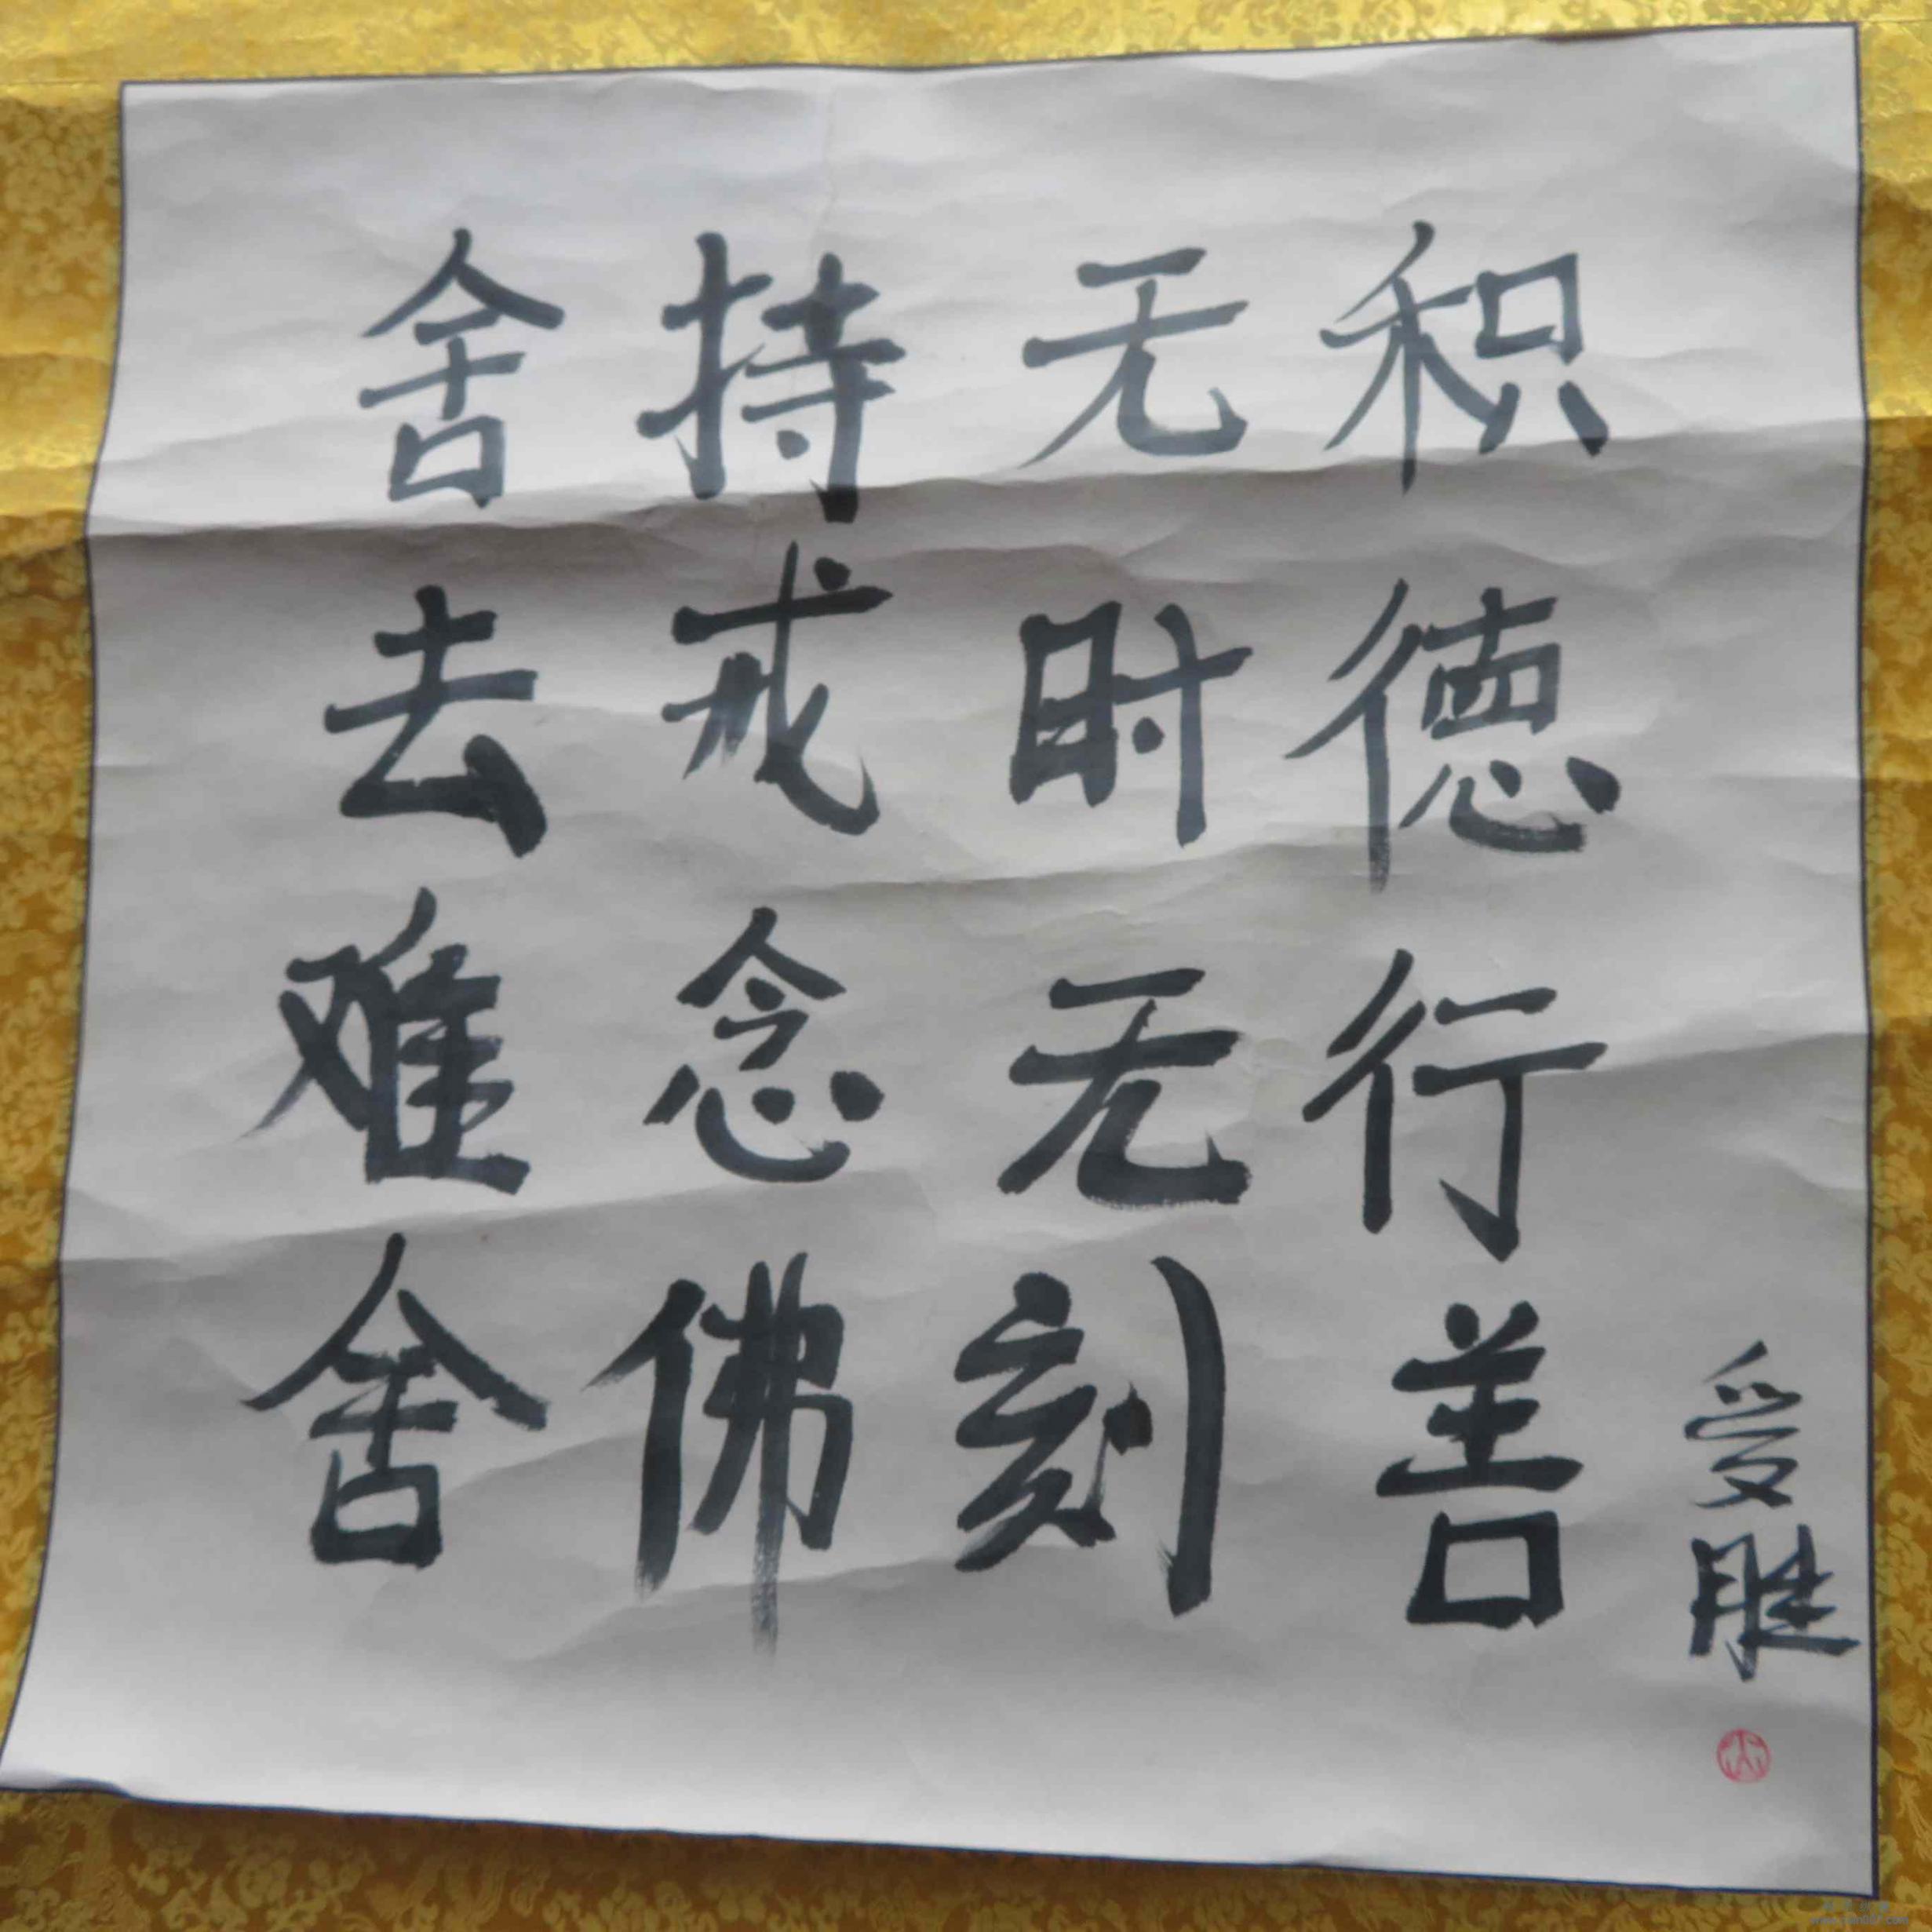 积德行善
无时无刻
持戒念佛
舍去难舍
受胜